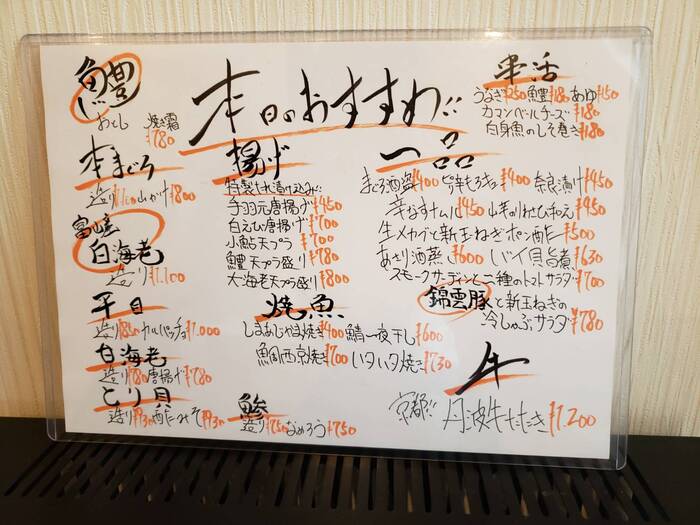 本日のおすすめ!!
鱧
おとし 焼き霜 ¥780
本まぐろ
造り ¥1,100 山かけ ¥800
富山産
白海老
造り ¥1,100
平目
造り ¥850 カルパッチョ ¥1,000
白海老
造り ¥780 唐揚げ ¥780
とり貝
造り ¥930 酢みそ ¥930
揚げ
特製たれ漬け込み!!
手羽元唐揚げ ¥450
白えび唐揚げ ¥700
小鮎天プラ ¥700
鱧天プラ盛り ¥780
大海老天プラ盛り ¥800
焼魚
しまあじかま焼き ¥400 鯖一夜干し ¥600
鯛西京焼き ¥700 いかいか焼き ¥730
鯵
造り ¥750 なめろう ¥750
串活
うなぎ ¥250 鱧 ¥180 あゆ ¥150
カマンベールチーズ ¥180
白身魚のしそ巻き ¥180
一品
まぐろ酒盗 ¥400 ¥400 奈良漬け ¥450
¥450 ¥450
生メカブと新玉ねぎポン酢 ¥500
あさり酒蒸し ¥600 バイ貝旨煮 ¥630
スモークサーディンと二種のトマトサラダ ¥700
錦雲豚と新玉ねぎの
冷しゃぶサラダ ¥780
牛
京都!! 丹波牛たたき ¥1,200